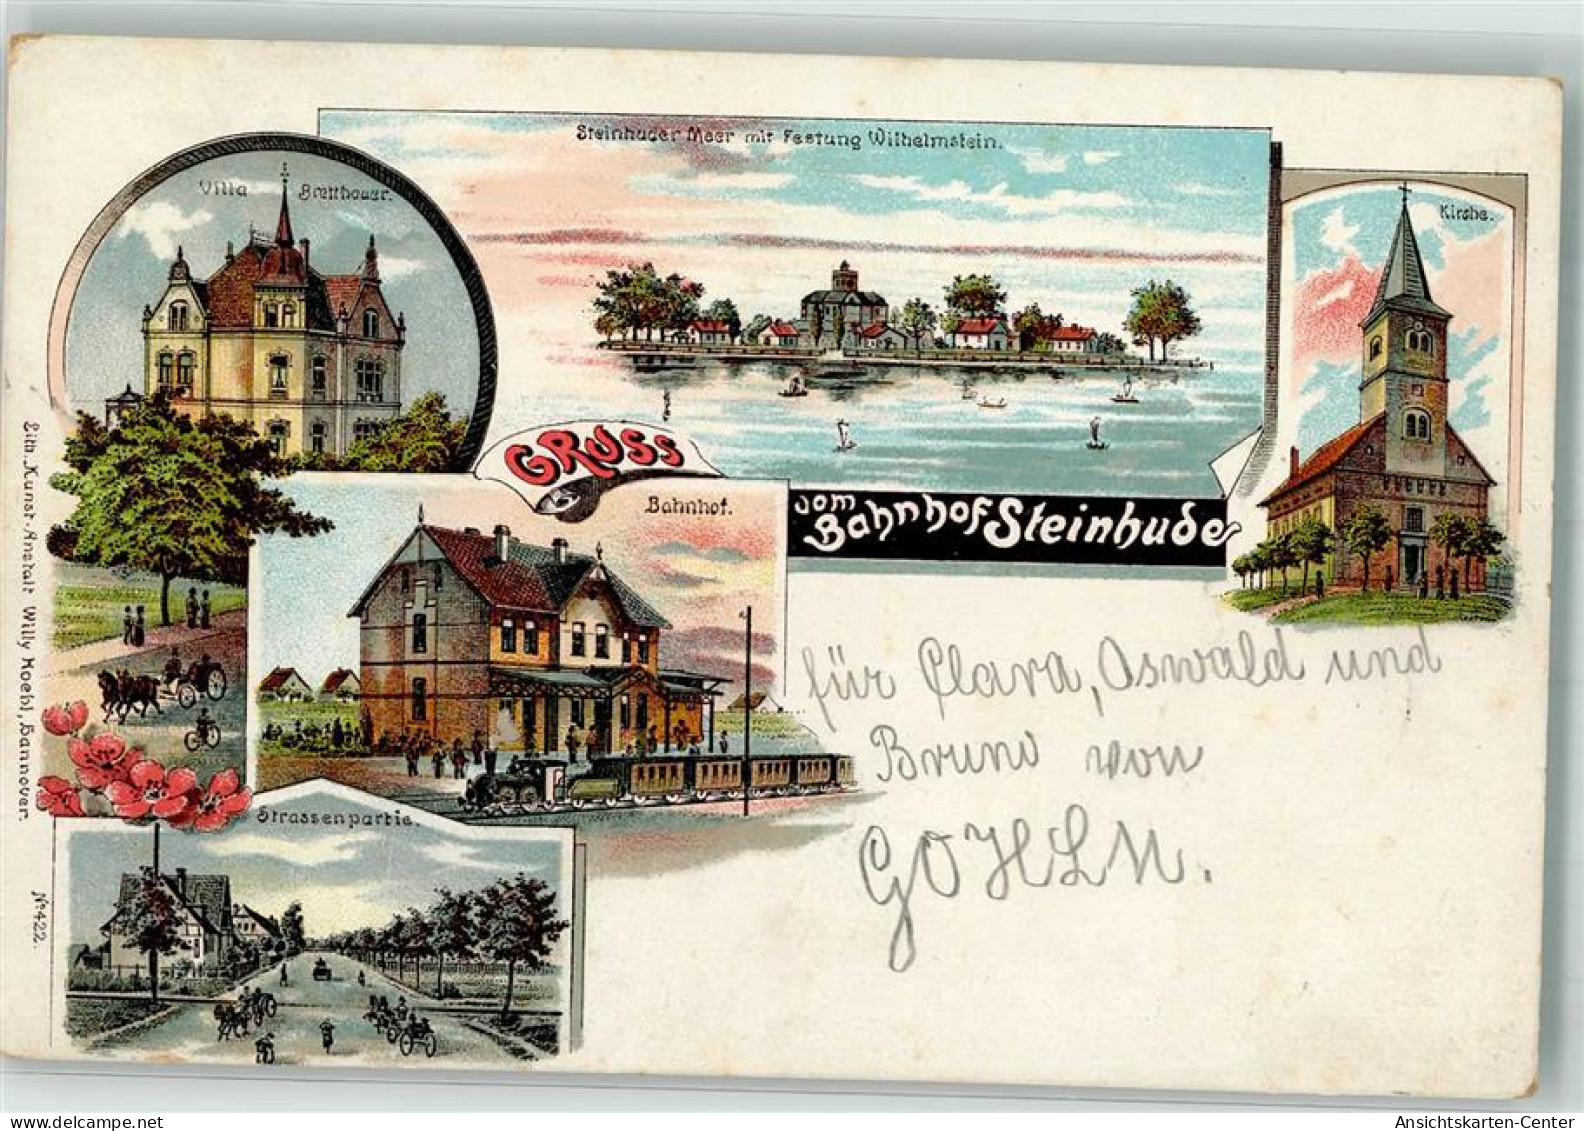 Steinhuder Meer mit Festung Wilhelmstein.
Villa Bretthauer.
Kirche.
GRUSS
vom
Bahnhof Steinhude
Bahnhof.
für Clara, Oswald und
Bruno von
GOHLM.
Strassenpartie.
Lith. Kunst-Anstalt Willy Moehl, Hannover.
No 422.
www.delcampe.net
Ansichtskarten-Center